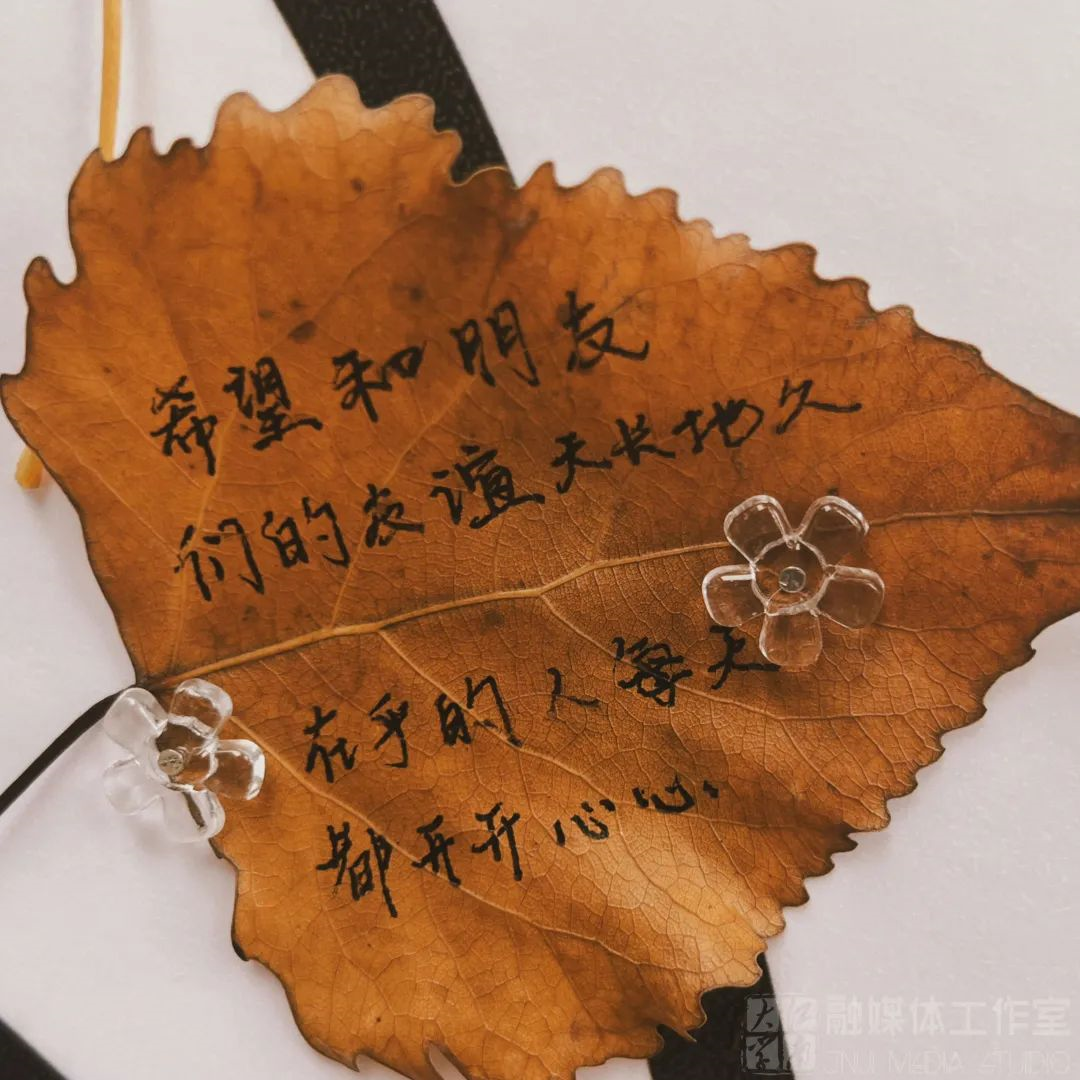 希望和朋友
们的友谊天长地久
在乎的人每天
都开开心心
融媒体工作室
JNUI MEDIA STUDIO